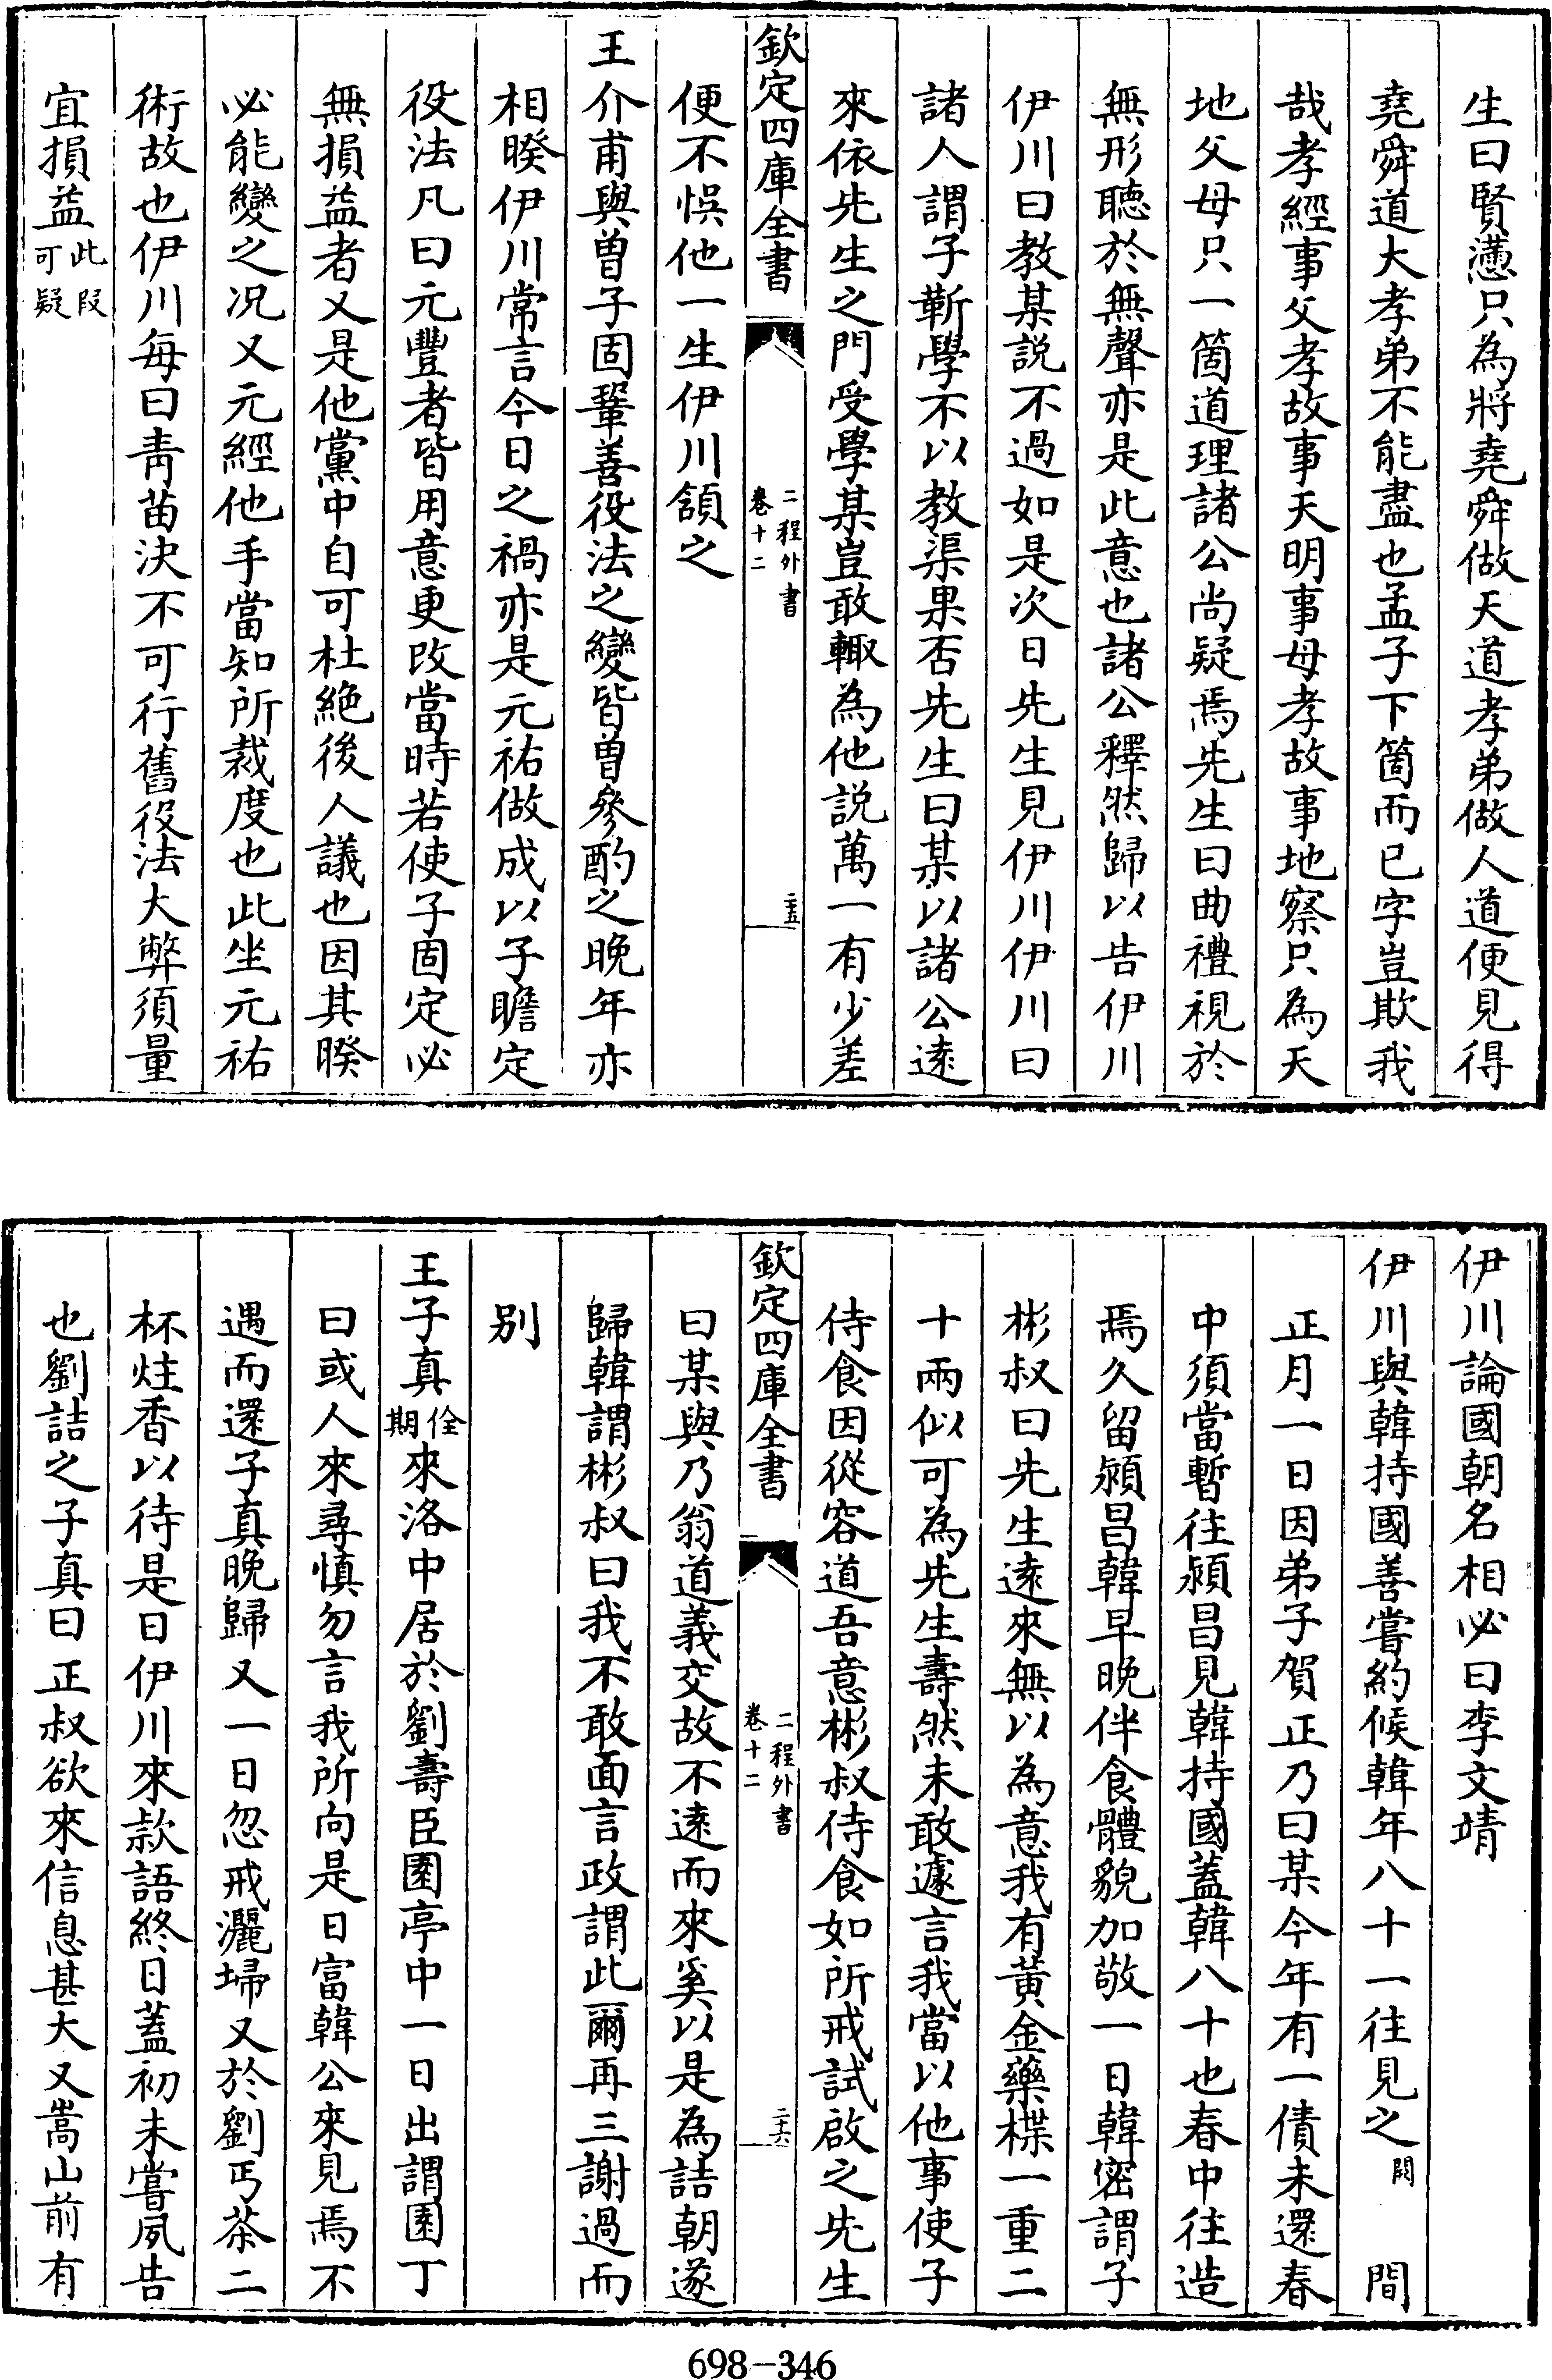 生曰賢懣只為將堯舜做天道孝弟做人道便見得
堯舜道大孝弟不能盡也孟子下箇而已字豈欺我
哉孝經事父孝故事天明事母孝故事地察只為天
地父母只一箇道理諸公尚疑焉先生曰曲禮視於
無形聽於無聲亦是此意也諸公釋然歸以告伊川
伊川曰教某説不過如是次日先生見伊川伊川曰
諸人謂子靳學不以教渠果否先生曰某以諸公遠
來依先生之門受學某豈敢輙為他説萬一有少差
欽定四庫全書
二程外書
卷十二
二五
便不悞他一生伊川頷之
王介甫與曽子固鞏善役法之變皆曽參酌之晚年亦
相暌伊川常言今日之禍亦是元祐做成以子瞻定
役法凡曰元豐者皆用意更改當時若使子固定必
無損益者又是他黨中自可杜絶後人議也因其暌
必能變之况又元經他手當知所裁度也此坐元祐
術故也伊川每曰青苗決不可行舊役法大弊須量
宜損益此段
可疑
伊川論國朝名相必曰李文靖
伊川與韓持國善嘗約候韓年八十一往見之闕 間
正月一日因弟子賀正乃曰某今年有一債未還春
中須當暫往潁昌見韓持國蓋韓八十也春中往造
焉久留潁昌韓早晚伴食體貌加敬一日韓密謂子
彬叔曰先生逺來無以為意我有黄金藥楪一重二
十兩似可為先生壽然未敢遽言我當以他事使子
侍食因從容道吾意彬叔侍食如所戒試啟之先生
欽定四庫全書
二程外書
卷十二
二六
曰某與乃翁道義交故不逺而來奚以是為詰朝遂
歸韓謂彬叔曰我不敢面言政謂此爾再三謝過而
别
王子真佺
期來洛中居於劉壽臣園亭中一日出謂園丁
曰或人來尋慎勿言我所向是日富韓公來見焉不
遇而還子真晚歸又一日忽戒灑埽又於劉丐茶二
杯炷香以待是日伊川來款語終日蓋初未嘗夙告
也劉詰之子真曰正叔欲來信息甚大又嵩山前有
698-346